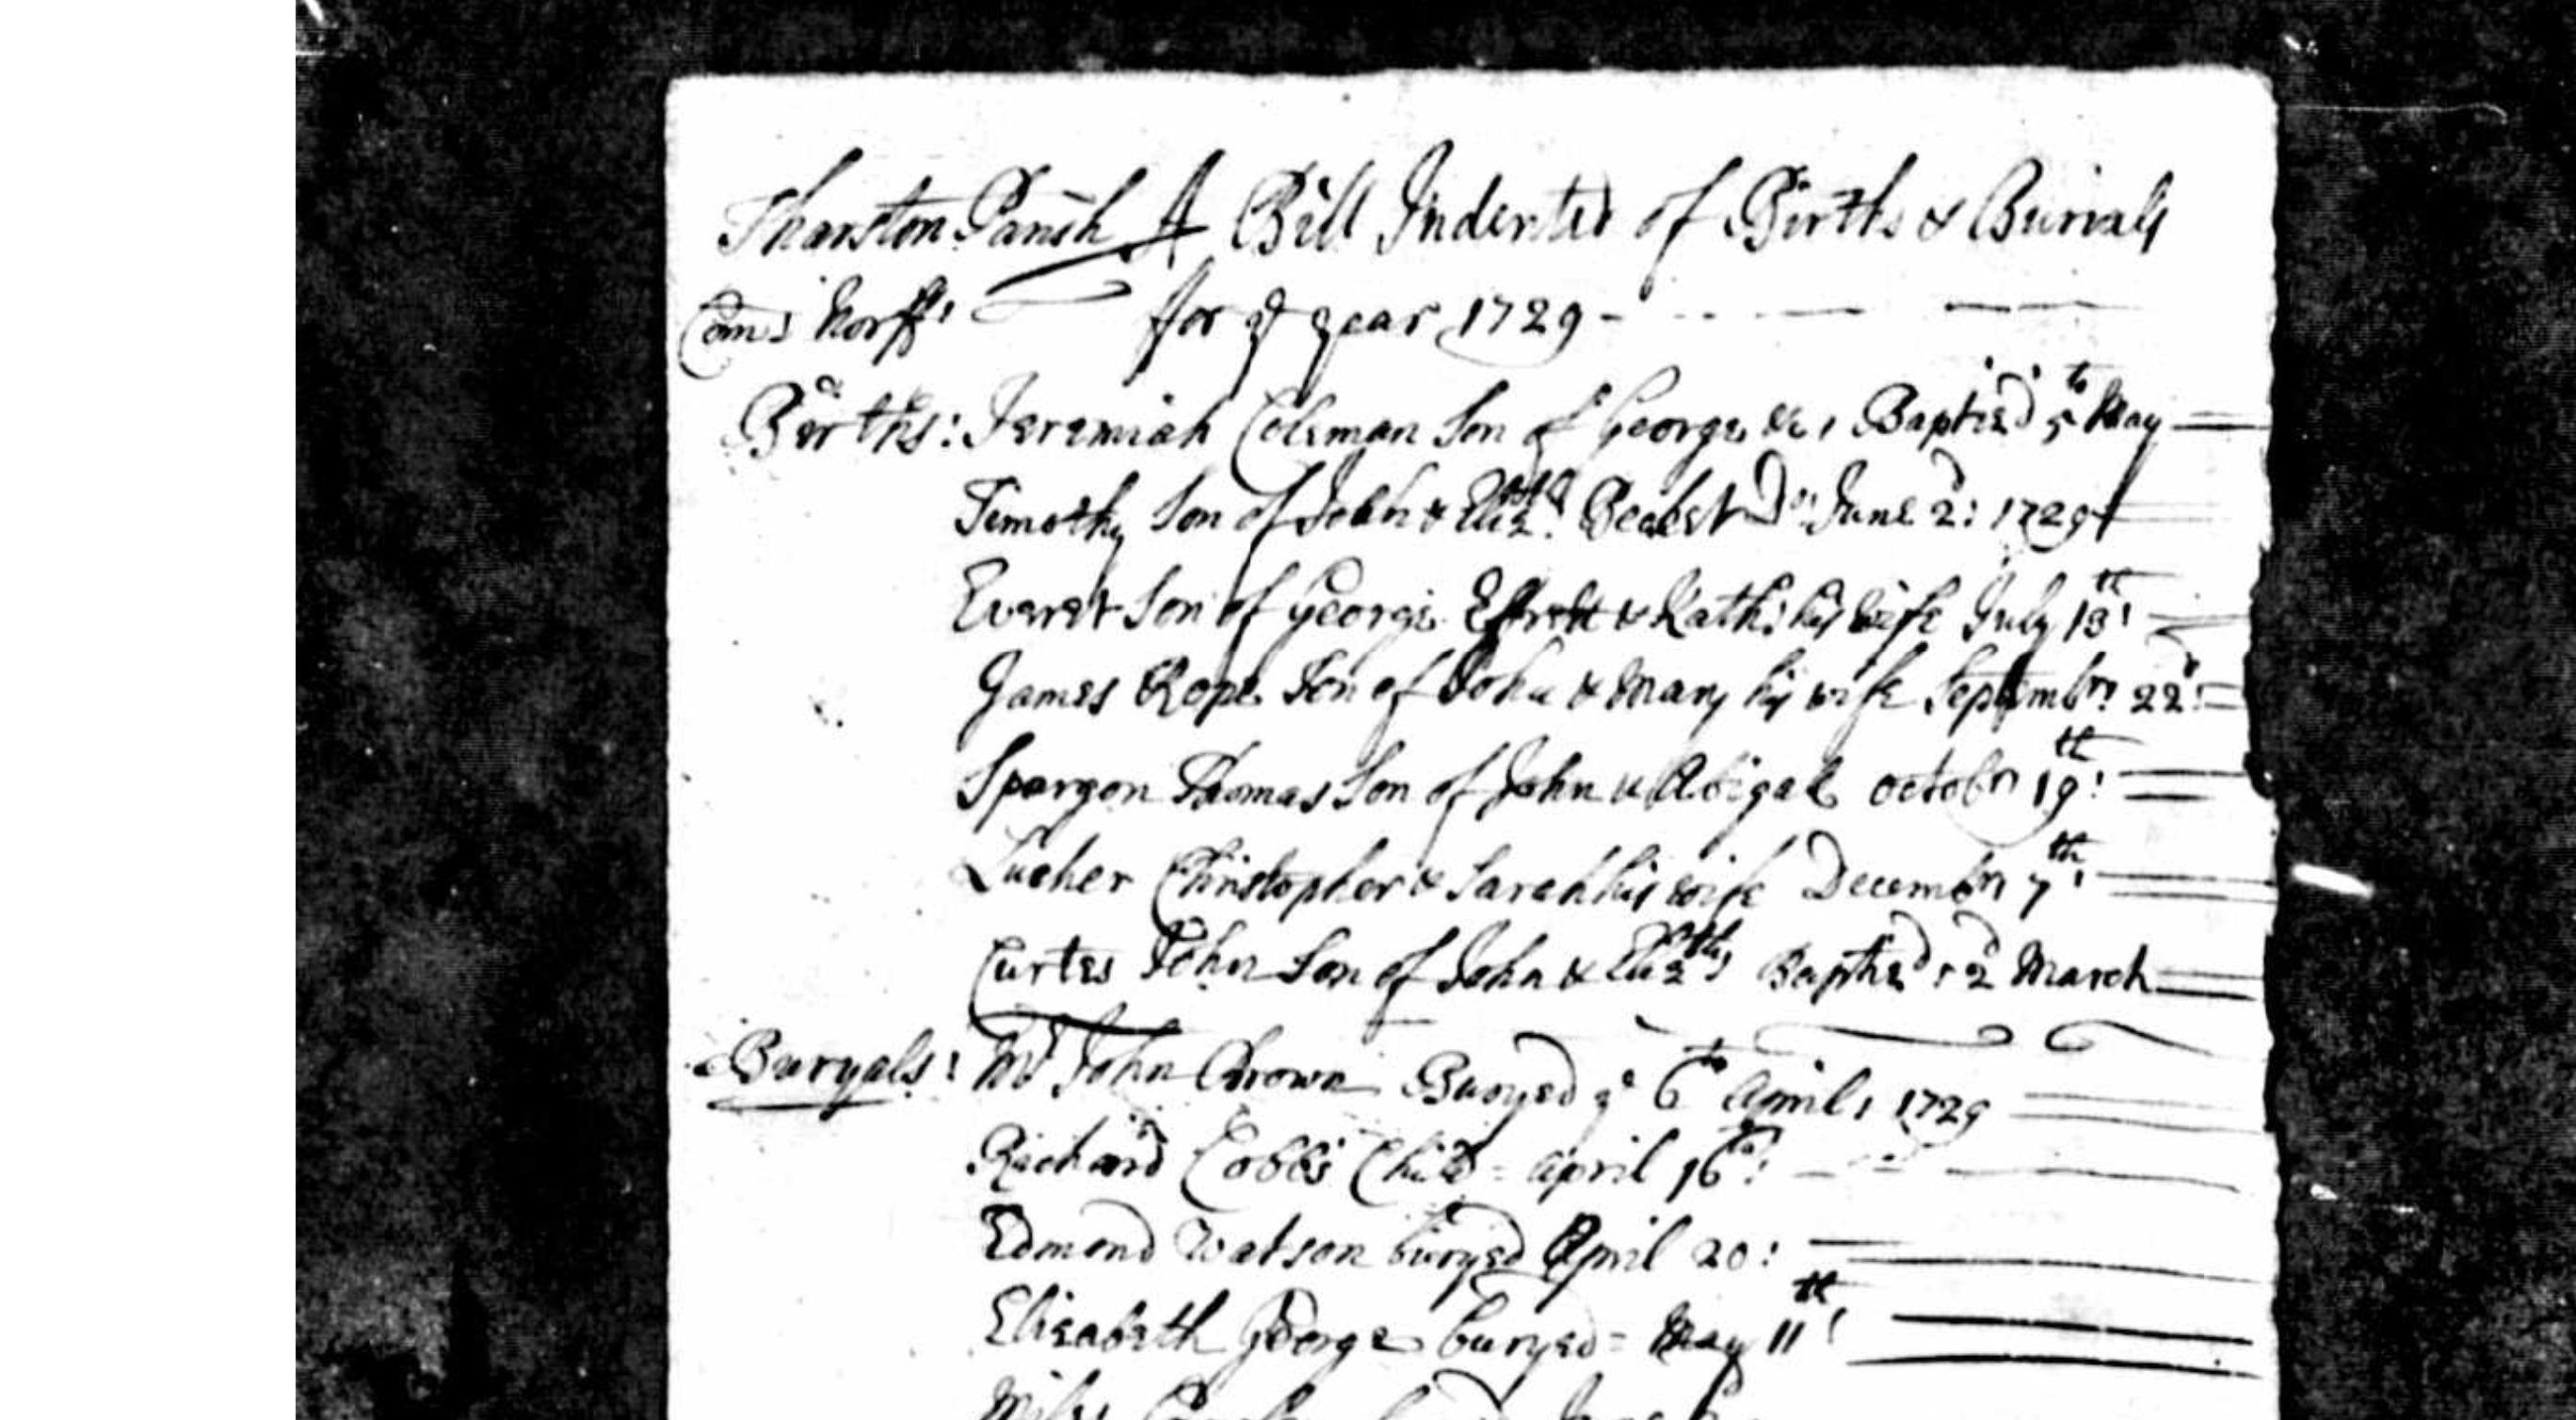 Tharston Parish A Bill Indented of Births & Burials
Com: Norff: for ye year 1729 -
Births: Jeremiah Coleman Son of George &c, Baptis'd 5th May
Timothy Son of John & Eliz: June 2: 1729
Everet Son of George & Kath: his wife July 13th:
James Rope Son of John & Mary his wife Septembr: 22d:
Spargon Thomas Son of John & Abigal octobr 19th:
Lucher Christopher & Sarah his wife Decembr 7th:
Curtes John Son of John & Elizth: Baptis'd: 2d March
Buryals: Mr John Brown Buryed ye 6th April, 1729
Richard Cobbs Child = April 16th:
Edmond Watson buryed April 20:
Elisabeth George buryed = May 11th: